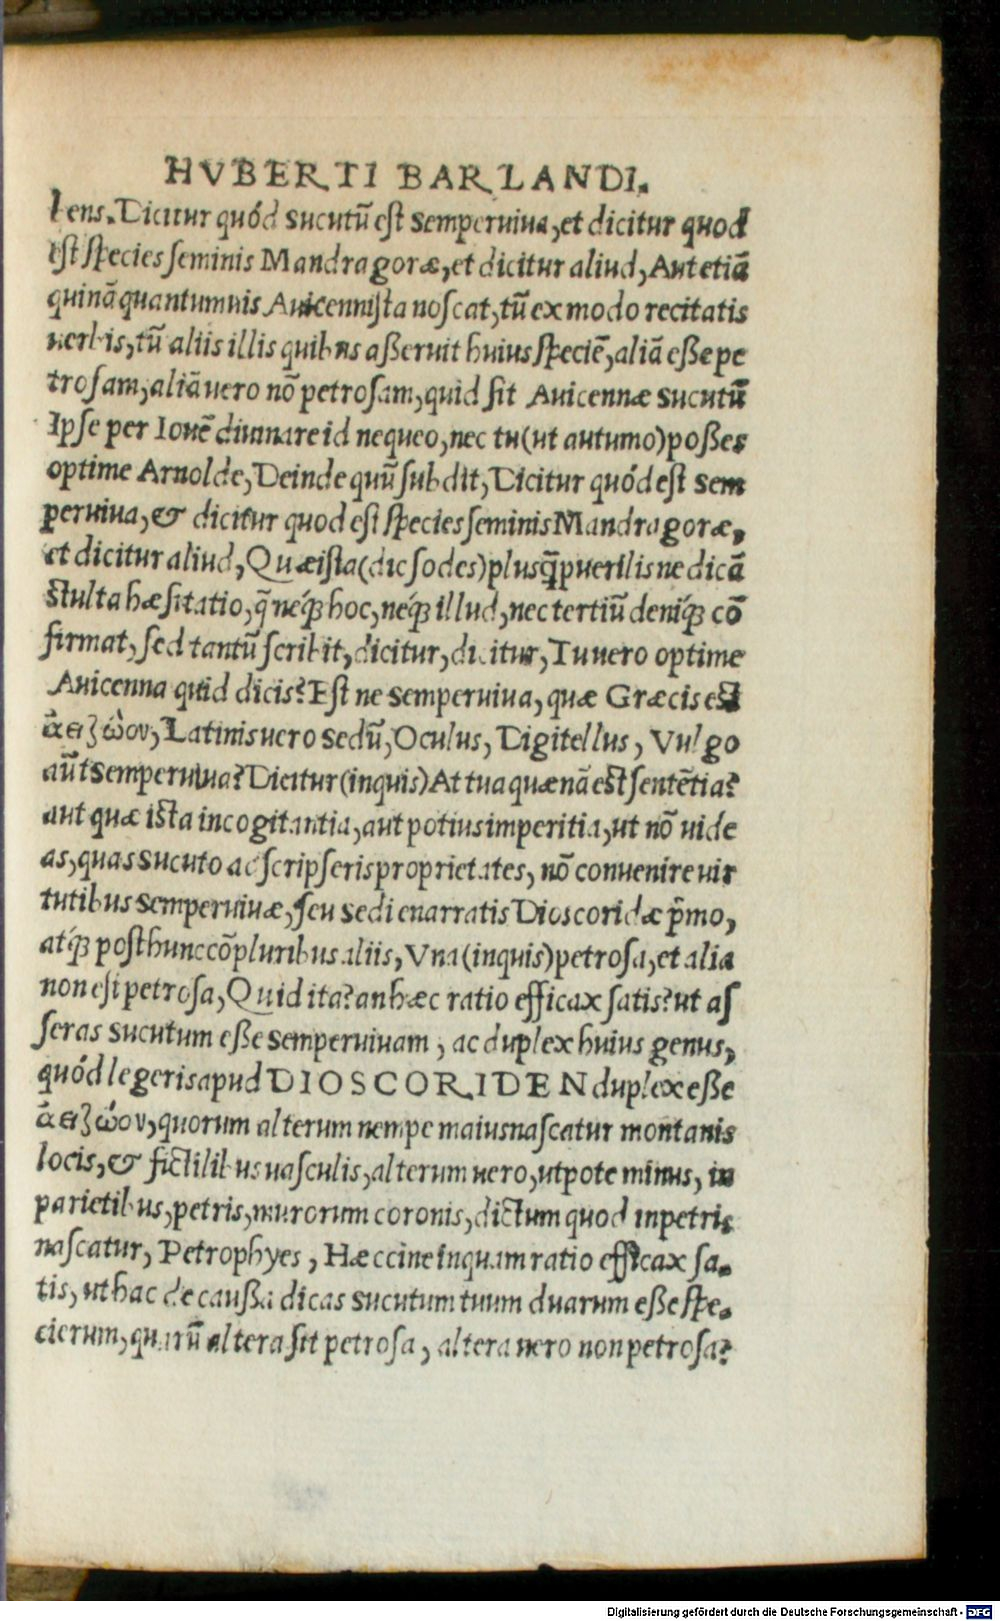 HVBERTI BARLANDI.
bens. Dicitur quód sucutū est semperuiua, et dicitur quod
est species seminis Mandragoræ, et dicitur aliud, Aut etiā
quinā quantumuis Auicennista noscat, tū ex modo recitatis
uerbis, tū aliis illis quibus aßeruit huius speciē, aliā eße pe
trosam, aliā uero nō petrosam, quid sit Auicennæ sucutū
Ipse per Iouē diuinare id nequeo, nec tu (ut autumo) poßes
optime Arnolde, Deinde quū subdit, Dicitur quód est sem
peruiua, & dicitur quod est species seminis Mandragoræ,
et dicitur aliud, Quæ ista (dic sodes) plusq̄ puerilis ne dicā
stulta hæsitatio, q̄ neq́; hoc, neq́; illud, nec tertiū deniq́; cō
firmat, sed tantū scribit, dicitur, dicitur, Tu uero optime
Auicenna quid dicis? Est ne semperuiua, quæ Græcis est
ἀειζώον, Latinis uero sedū, Oculus, Digitellus, Vulgo
aūt semperuiua? Dicitur (inquis) At tua quænā est sentētia?
aut quæ ista incogitantia, aut potius imperitia, ut nō uide
as, quas sucuto adscripseris proprietates, nō conuenire uir
tutibus semperuiuæ, seu sedi enarratis Dioscoridæ p̄mo,
atq́; post hunc cōpluribus aliis, Vna (inquis) petrosa, et alia
non est petrosa, Quid ita? an hæc ratio efficax satis? ut as
seras sucutum eße semperuiuam, ac duplex huius genus,
quód legeris apud DIOSCORIDEN duplex eße
ἀειζώον, quorum alterum nempe maius nascatur montanis
locis, & fictilibus uasculis, alterum uero, utpote minus, in
parietibus, petris, murorum coronis, dictum quod in petris
nascatur, Petrophyes, Hæccine inquam ratio efficax sa-
tis, ut hac de caußa dicas sucutum tuum duarum eße spe-
cierum, quarū altera sit petrosa, altera uero non petrosa?
Digitalisierung gefördert durch die Deutsche Forschungsgemeinschaft - DFG